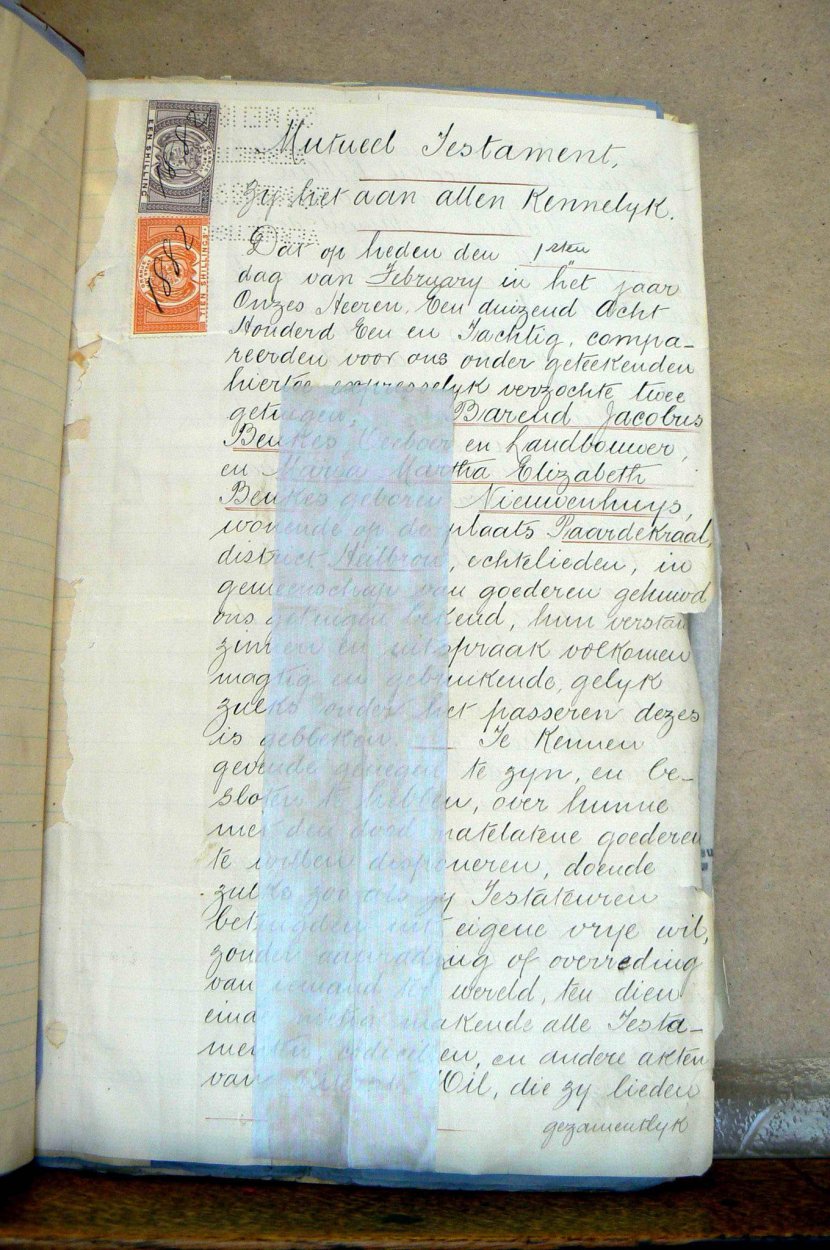 EEN SHILLING
1882
TIEN SHILLINGS
1882
Mutueel Testament,
Zy het aan allen Kennelyk.
Dat op heden den 1sten
dag van February in het jaar
Onzes Heeren, Een duizend Acht
Honderd Een en Tachtig, compa-
reerden voor ons onder geteekenden
hiertoe expresselyk verzochte twee
getuigen, Barend Jacobus
Beukes Veeboer en Landbouwer,
en Maria Martha Elizabeth
Beukes geboren Nieuwenhuys,
wonende op de plaats Paardekraal,
district Heilbron, echtelieden, in
gemeenschap van goederen gehuwd
ons getuigen bekend, hun verstan
zinnen en uitspraak volkomen
magtig en gebruikende, gelyk
zulks onder het passeren dezes
is gebleken. — Te Kennen
gevende genegen te zyn, en be-
sloten te hebben, over hunne
met den dood natelatene goederen
te willen disponeren, doende
zulks zoo als zy Testateuren
betuigden uit eigene vrye wil,
zonder aanrading of overreding
van iemand ter wereld, ten dien
einde nietig makende alle Testa-
menten, codicillen, en andere akten
van Wil, die zy lieden
gezamentlyk